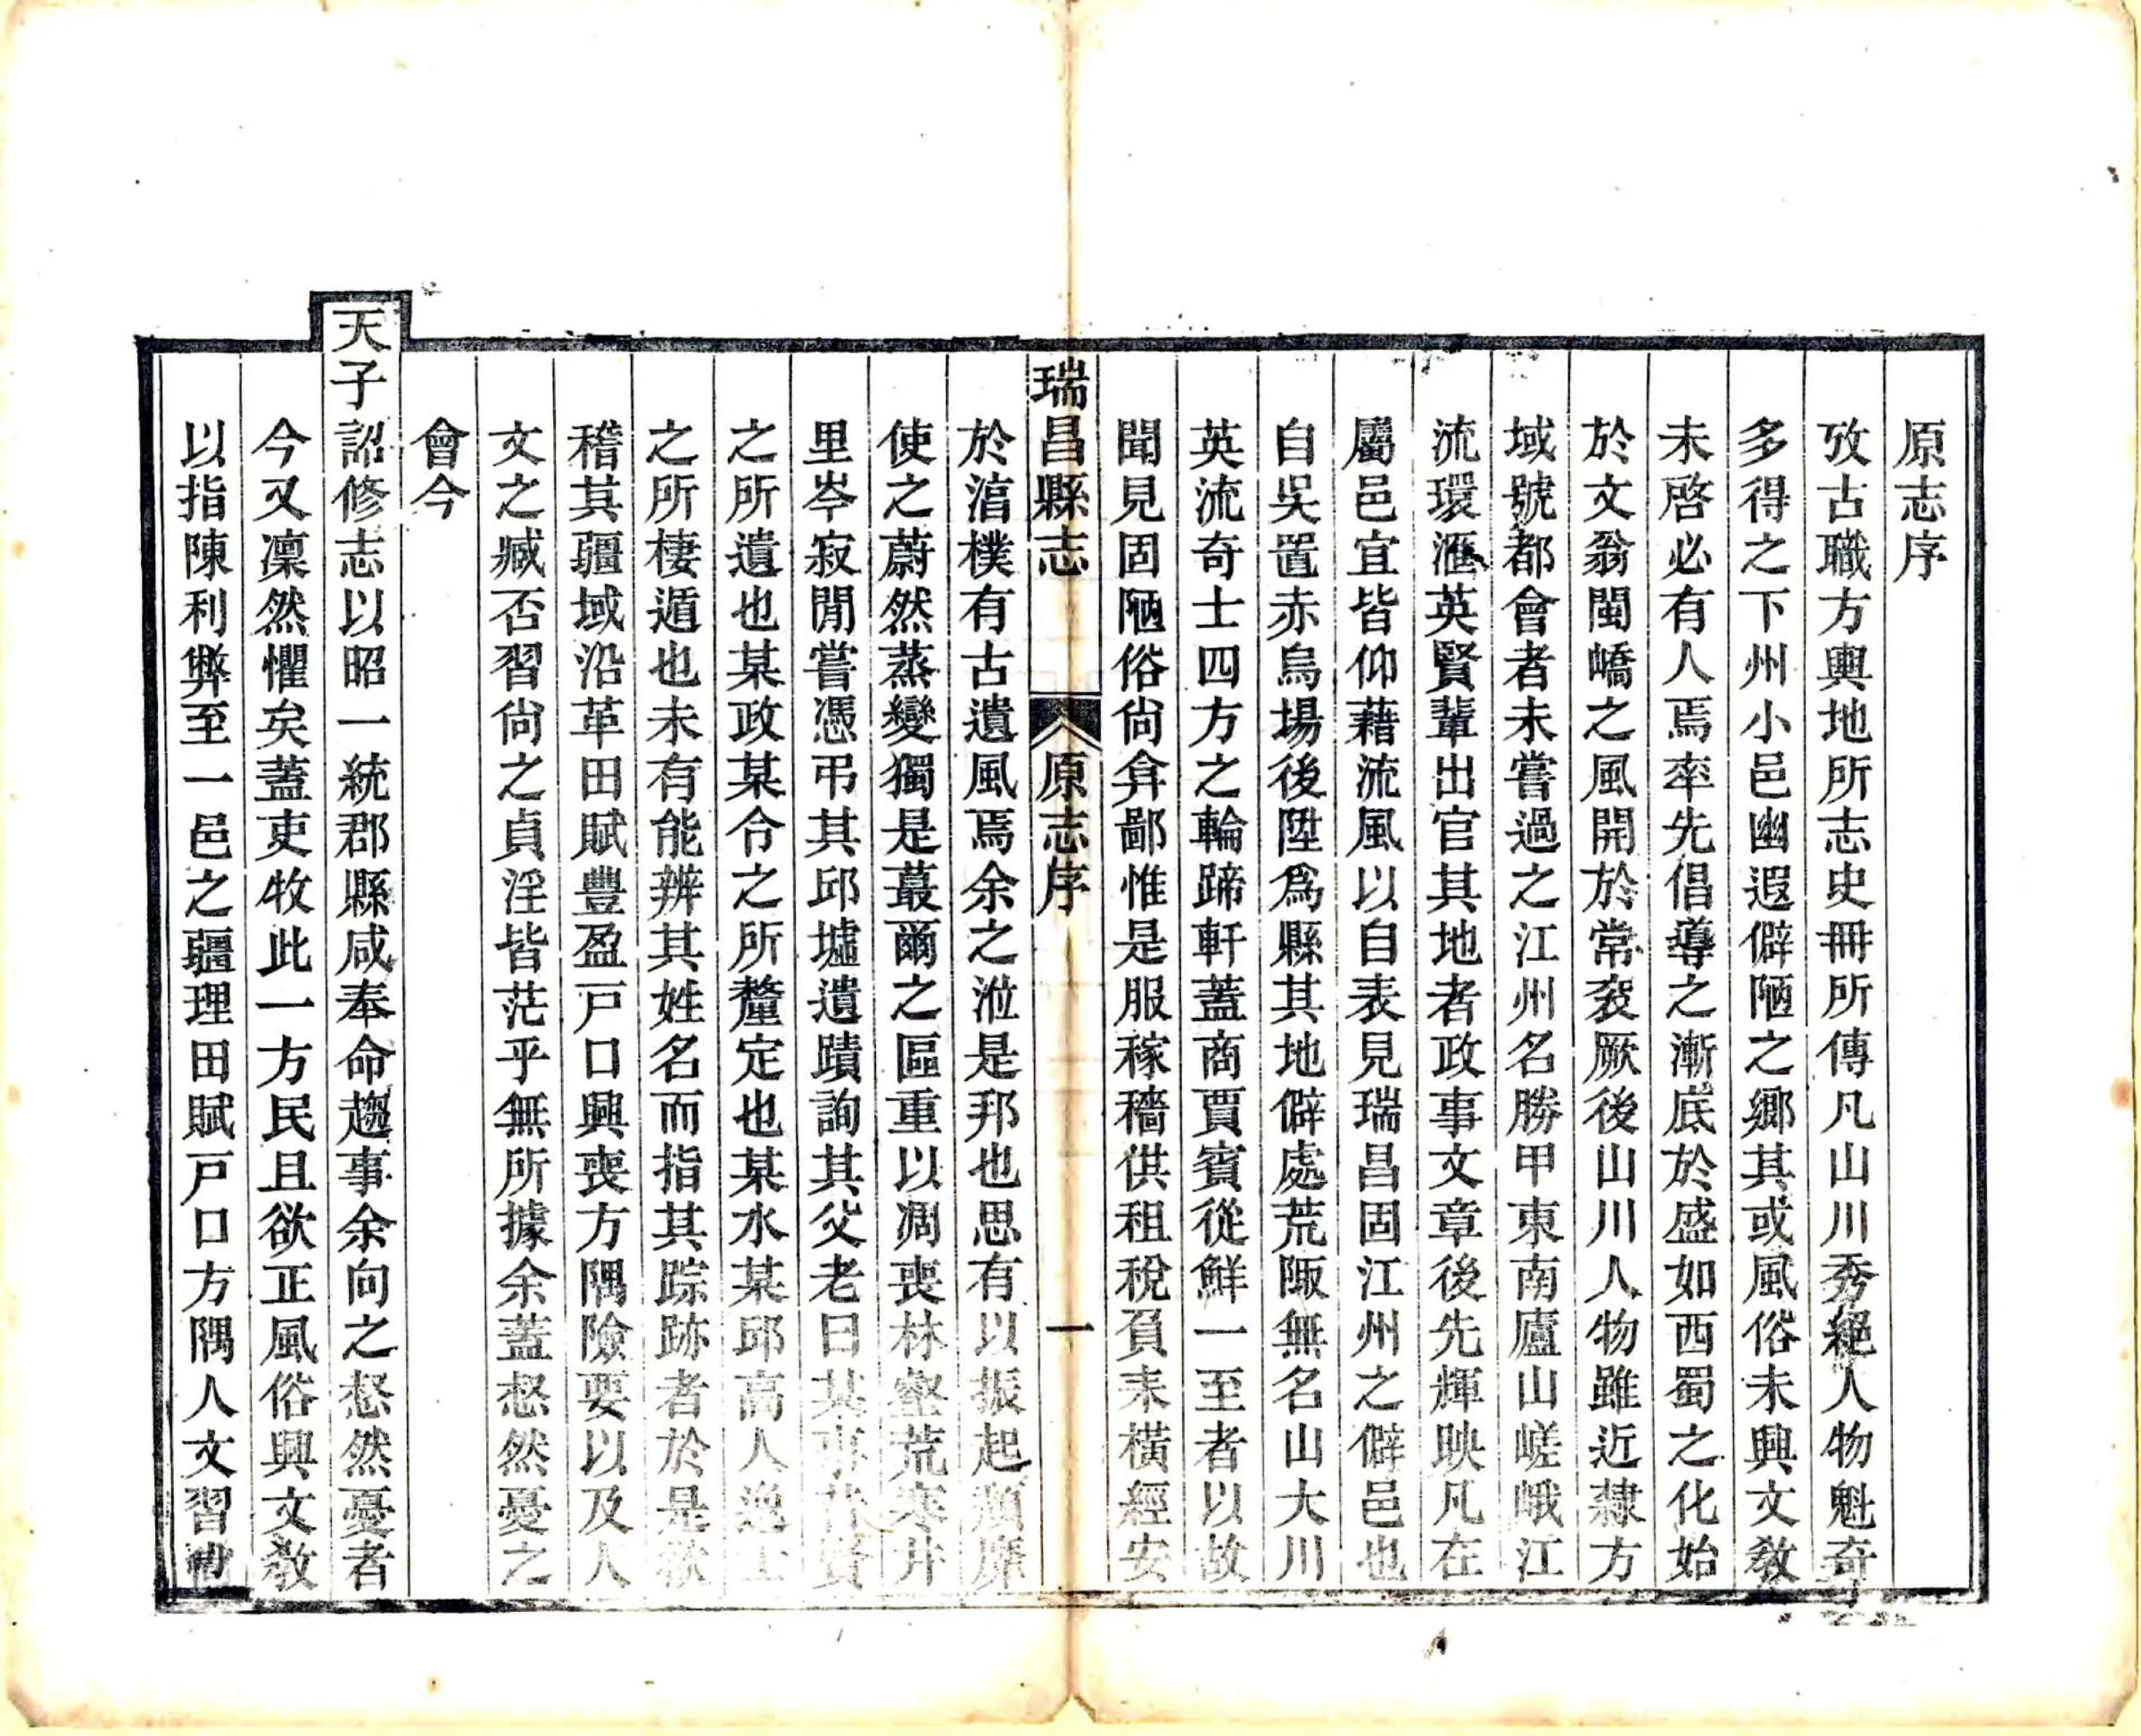 原志序
攷古職方輿地所志史冊所傳凡山川秀絕人物魁奇
多得之下州小邑幽遐僻陋之鄉其或風俗未興文敎
未啓必有人焉率先倡導之漸底於盛如西蜀之化始
於文翁閩嶠之風開於常袞厥後山川人物雖近隸方
域號都會者未嘗過之江州名勝甲東南廬山嵯峨江
流環滙英賢輩出官其地者政事文章後先輝映凡在
屬邑宜皆仰藉流風以自表見瑞昌固江州之僻邑也
自吳置赤烏場後陞爲縣其地僻處荒陬無名山大川
英流奇士四方之輪蹄軒蓋商賈賓從鮮一至者以故
聞見固陋俗尙弇鄙惟是服稼穡供租稅負耒橫經安
瑞昌縣志 原志序 一
於湻樸有古遺風焉余之涖是邦也思有以振起頹靡
使之蔚然蒸變獨是蕞爾之區重以凋喪林壑荒寒井
里岑寂閒嘗憑弔其邱墟遺蹟詢其父老曰某事某賢
之所遺也某政某令之所釐定也某水某邱高人逸士
之所棲遁也未有能辨其姓名而指其踪跡者於是欲
稽其疆域沿革田賦豐盈戸口興喪方隅險要以及人
文之臧否習尙之貞淫皆茫乎無所據余蓋惄然憂之
會今
天子詔修志以昭一統郡縣咸奉命趨事余向之惄然憂者
今又凜然懼矣蓋吏牧此一方民且欲正風俗興文敎
以指陳利弊至一邑之疆理田賦戸口方隅人文習